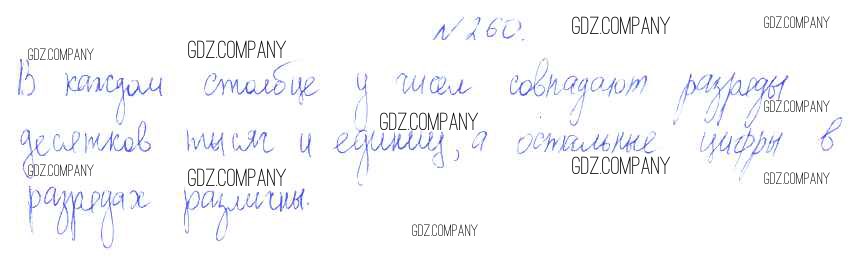 № 260.
В каждом столбце у чисел совпадают разряды
десятков тысяч и единиц, а остальные цифры в
разрядах различны.
GDZ.COMPANY
GDZ.COMPANY
GDZ.COMPANY
GDZ.COMPANY
GDZ.COMPANY
GDZ.COMPANY
GDZ.COMPANY
GDZ.COMPANY
GDZ.COMPANY
GDZ.COMPANY
GDZ.COMPANY